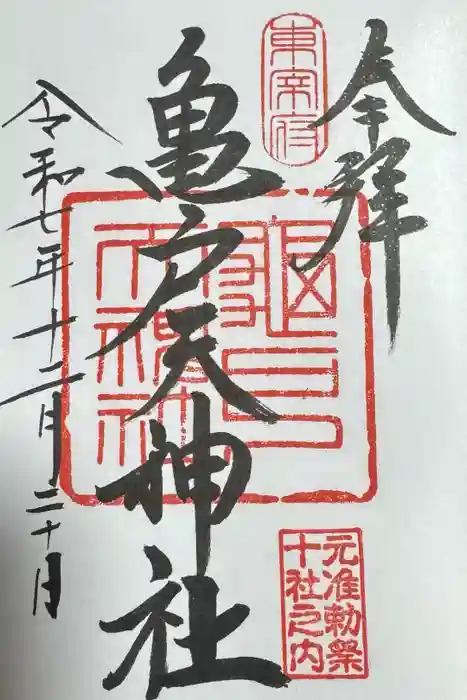 奉拝
東宰府
亀戸天神社
元准勅祭
十社之内
令和七年十二月二十日